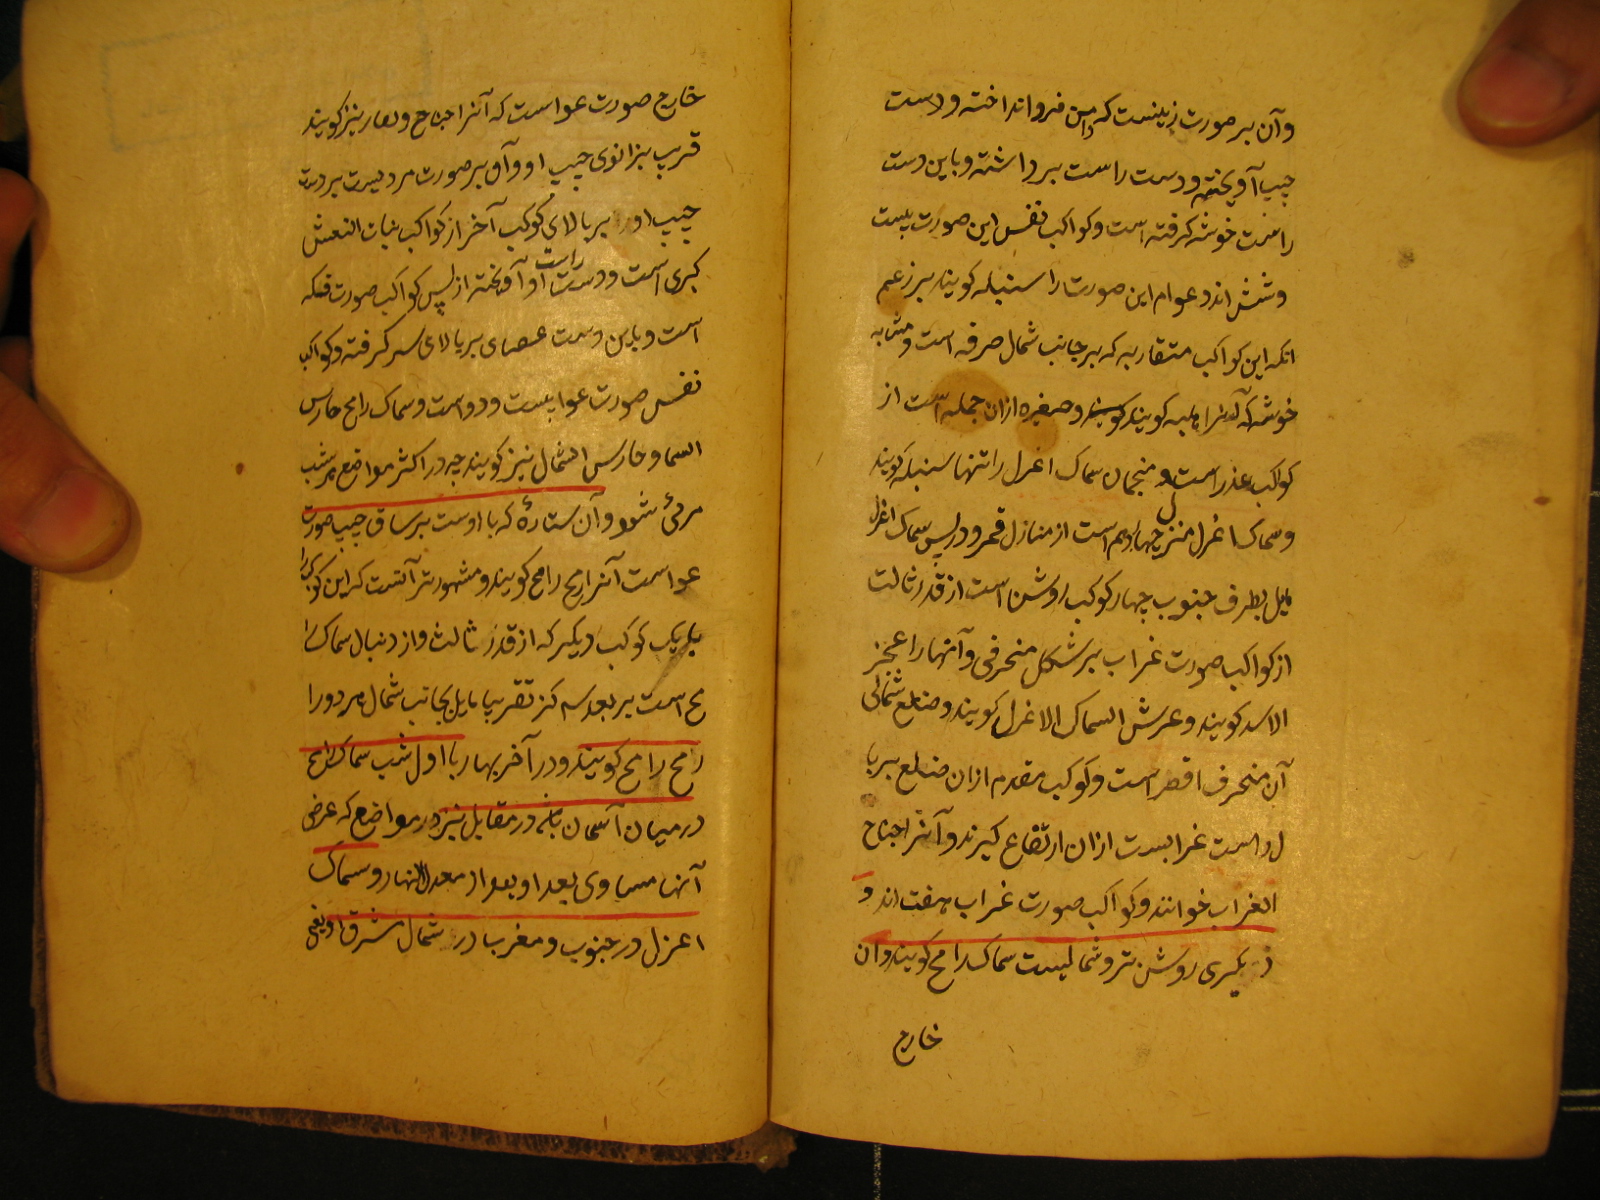 وآن بر صورت زنیست که دامن فرو انداخته و دست
چپ آویخته و دست راست برداشته و باین دست
راست خوشه گرفته است و کواکب نفس این صورت بیست
و شش اند و عوام این صورت را سنبله گویند بر زعم
انکه این کواکب متقاربه که بر جانب شمال صرفه است و مشابه
خوشه که آنرا هلبه گویند گویند و صغیره ازان جمله است از
کواکب عذراست و منجمان سماک اعزل را تنها سنبله گویند
و سماک اعزل منزل چهاردهم است از منازل قمر و در پس سماک اعزل
مایل بطرف جنوب چهار کوکب روشن است از قدر ثالث
از کواکب صورت غراب بر شکل منحرفی و آنها را عجز
الاسد گویند و عرش السماک الاعزل گویند و ضلع شمالی
آن منحرف اقصر است و کوکب مقدم ازان ضلع بر با
ل راست غرابست ازان ارتفاع گیرند و آنرا جناح
الغراب خوانند و کواکب صورت غراب هفت اند و
دیگری روشن تر و شمالیست سماک رامح گویند و ان
خارج
خارج صورت عوا است که آنرا نیز گویند
قریب بزانوی چپ او و آن بر صورت مردیست بر دست
چپ او را بر بالای کوکب آخر از کواکب بنات النعش
کبری است و دست راست او آویخته از پس کواکب صورت فکه
است و باین دست عصای بر بالای سر گرفته و کواکب
نفس صورت عوا بیست و دو است و سماک رامح حارس
السما و حارس الشمال نیز گویند چه در اکثر مواضع شب
مرئی شود و آن ستارهٔ که با اوست بر ساق چپ صورت
عوا است آنرا رمح رامح گویند و مشهورتر آنست که این کوکب را
با یک کوکب دیگر که از قدر ثالث و از دنبال سماک را
مح است بر بعد سه گز تقریبا مایل بجانب شمال هر دو را
رمح رامح گویند و در آخر بهار با اول شب سماک رامح
در میان آسمان باشد در مقابل نیز در مواضع که عرض
آنها مساوی بعد او بود از معدل النهار و سماک
اعزل در جنوب و مغرب در شمال مشرق او یعنی